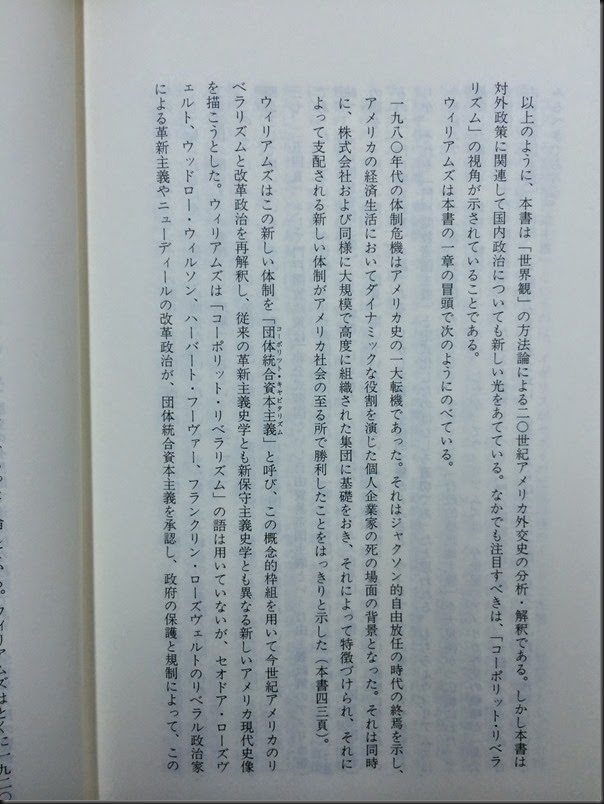 以上のように、本書は「世界観」の方法論による二〇世紀アメリカ外交史の分析・解釈である。しかし本書は
対外政策に関連して国内政治についても新しい光をあてている。なかでも注目すべきは、「コーポリット・リベラ
リズム」の視角が示されていることである。
ウィリアムズは本書の一章の冒頭で次のようにのべている。
一九八〇年代の体制危機はアメリカ史の一大転機であった。それはジャクソン的自由放任の時代の終焉を示し、
アメリカの経済生活においてダイナミックな役割を演じた個人企業家の死の場面の背景となった。それは同時
に、株式会社および同様に大規模で高度に組織された集団に基礎をおき、それによって特徴づけられ、それに
よって支配される新しい体制がアメリカ社会の至る所で勝利したことをはっきりと示した（本書四三頁）。
コーポリット・キャピタリズム
ウィリアムズはこの新しい体制を「団体統合資本主義」と呼び、この概念的枠組を用いて今世紀アメリカのリ
ベラリズムと改革政治を再解釈し、従来の革新主義史学とも新保守主義史学とも異なる新しいアメリカ現代史像
を描こうとした。ウィリアムズは「コーポリット・リベラリズム」の語は用いていないが、セオドア・ローズヴ
ェルト、ウッドロー・ウィルソン、ハーバート・フーヴァー、フランクリン・ローズヴェルトのリベラル政治家
による革新主義やニューディールの改革政治が、団体統合資本主義を承認し、政府の保護と規制によって、この
いる。ウィリアムズはとくに一九二〇